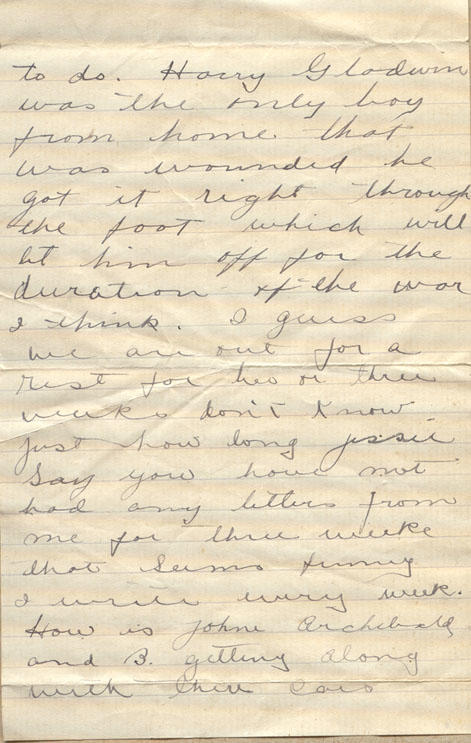 to do. Harry Gladwin
was the only boy
from home that
was wounded he
got it right through
the foot which will
let him off for the
duration of the war
I think. I guess
we are out for a
rest for two or three
weeks don't know
just how long Jessie
Say you have not
had any letters from
me for three weeks
that seems funny
I write every week.
How is Johne Archibald
and B. getting along
with their cars